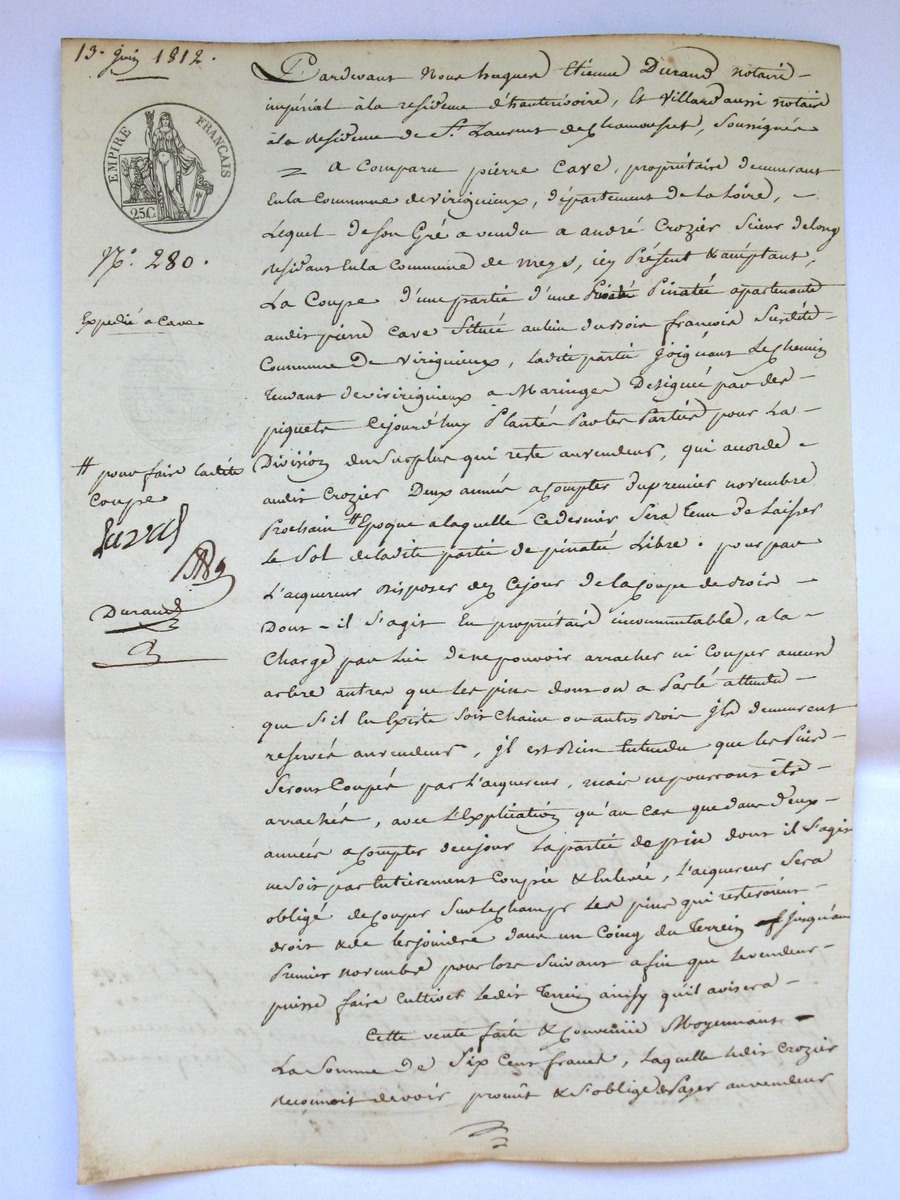 13. Juin 1812.
EMPIRE FRANÇAIS
25C.
N.º 280.
Expedié a Cave
# pour faire ladite
Coupe
Durand
Pardevant Nous hugues Etienne Durand notaire
impérial à la residence d'hauterivoire, Et Villard aussi notaire
à la Residence de S.t Laurent de Chamousset, soussignés
A Comparu pierre Cave, propriétaire demeurant
En la Commune de virigneux, département de la Loire,
Lequel de son Gré a vendu a andré Crozier Scieur de long
residant En la Commune de meys, icy Présent & acceptant,
La Coupe d'une partie d'une Pinatée appartenante
audit pierre Cave Située au lieu du bois françois Susdite
Commune De Virigneux, ladite partie joignant Le Chemin
tendant de virigneux a Maringes Designée par des
piquets Cejourd'huy Plantés Par les Parties pour La
Division du Surplus qui reste au vendeur, qui accorde
audit Crozier Deux années a Compter du premier novembre
Prochain # Epoque a laquelle Ce dernier Sera tenu de Laisser
Le Sol de ladite partie de pinatée Libre. pour par
L'acquereur Disposer dez Cejour de la Coupe de bois
Dont il S'agit En propriétaire incommutable, a la
Charge par Lui de ne pouvoir arracher ni Couper aucun
arbre autres que les pins dont on a Parlé attendu
que S'il En Existe Soit Chaine ou autres bois ils demeurent
reservés au vendeur, il est bien Entendu que les Pins
Seront Coupés par L'acquereur, mais ne pourront être
arrachés, avec L'Explication qu'au cas que dans deux
années a Compter de ce jour La partie de pin dont il S'agit
ne soit pas Entièrement Coupée & Enlevée, L'acquereur Sera
obligé de Couper Sur le Champs Les pins qui resteroient
droit & de les joindre dans un Coing du Terrein jusqu'au
Premier novembre pour lors Suivant afin que le vendeur
puisse faire Cultiver Ledit Terrein ainsy qu'il avisera
Cette vente faite & Convenüe Moyennant
La Somme de Six Cent francs, Laquelle Ledit Crozier
Reconnoit devoir promet & S'oblige de Payer au vendeur